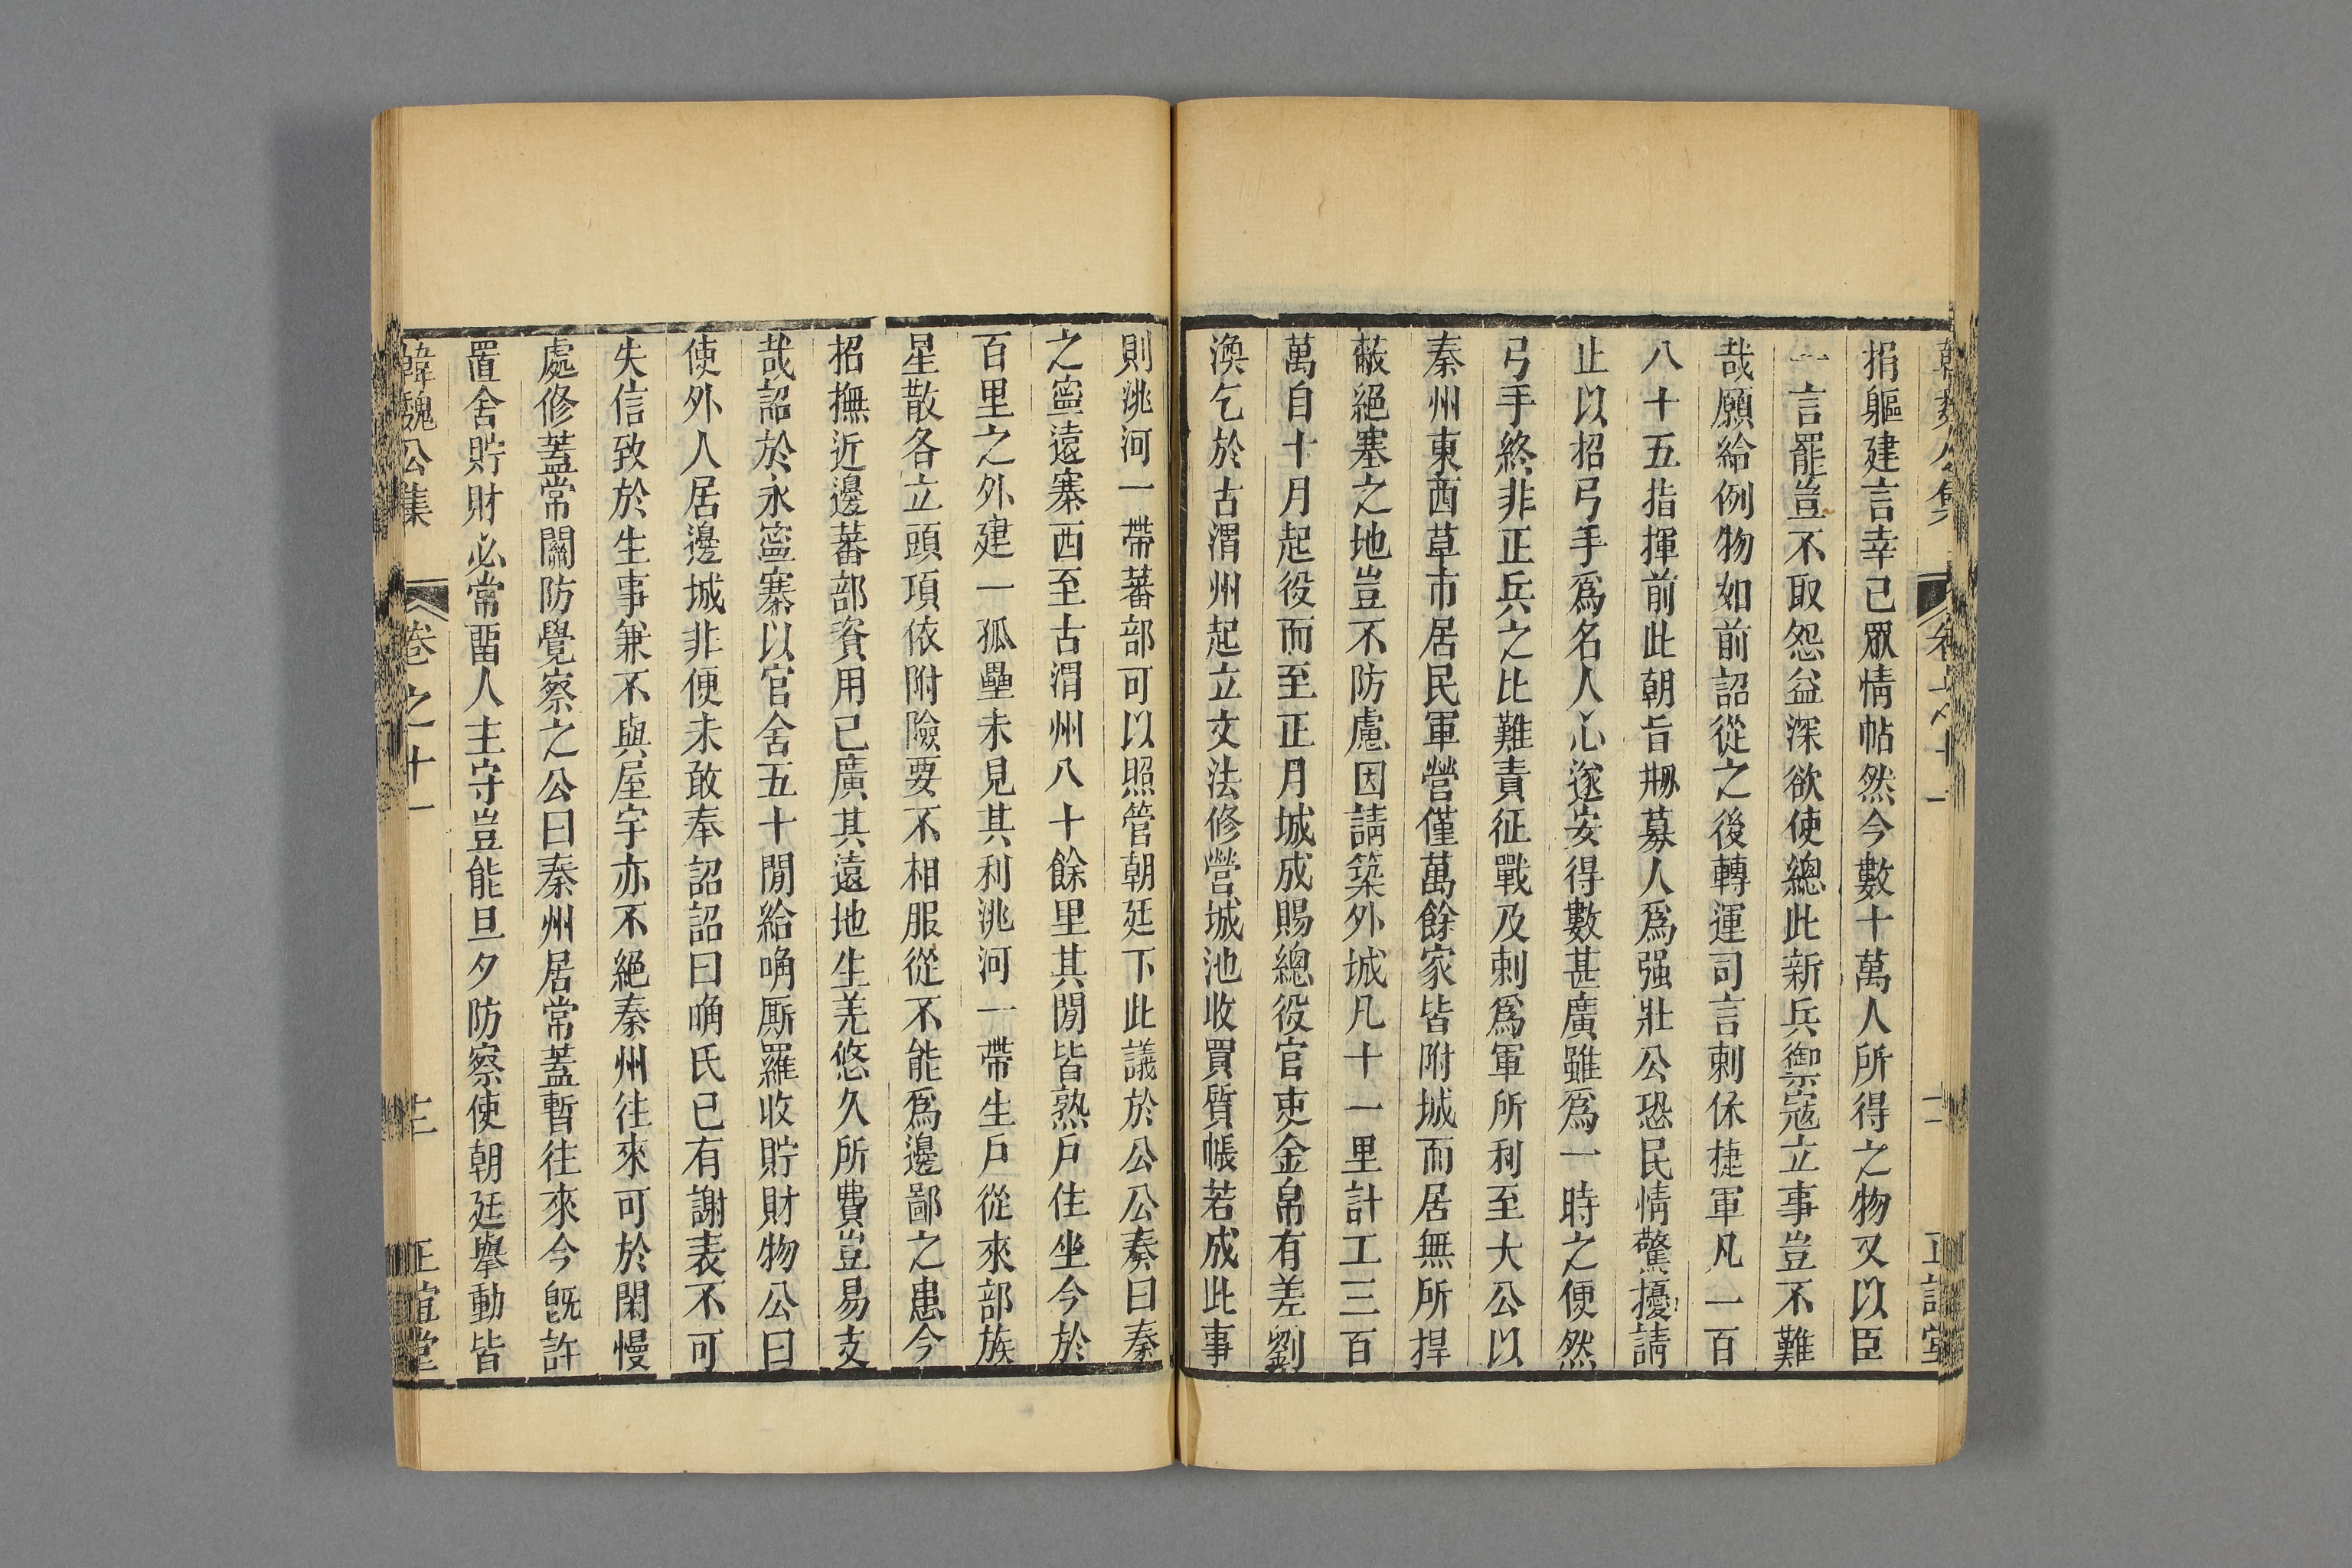 捐軀建言幸已眾情帖然今數十萬人所得之物又以臣
一言罷豈不取怨益深欲使總此新兵禦寇立事豈不難
哉願給例物如前詔從之後轉運司言刺保捷軍凡一百
八十五指揮前此朝旨刱募人爲强壯公恐民情驚擾請
止以招弓手爲名人心遂安得數甚廣雖爲一時之便然
弓手終非正兵之比難責征戰及刺爲軍所利至大公以
秦州東西草市居民軍營僅萬餘家皆附城而居無所捍
蔽絕塞之地豈不防慮因請築外城凡十一里計工三百
萬自十月起役而至正月城成賜總役官吏金帛有差劉
渙乞於古渭州起立文法修營城池收買質帳若成此事
則洮河一帶蕃部可以照管朝廷下此議於公公奏曰秦
之寧遠寨西至古渭州八十餘里其閒皆熟戶住坐今於
百里之外建一孤壘未見其利洮河一帶生戶從來部族
星散各立頭項依附險要不相服從不能爲邊鄙之患今
招撫近邊蕃部資用已廣其遠地生羌悠久所費豈易支
哉詔於永寧寨以官舍五十閒給唃厮羅收貯財物公曰
使外人居邊城非便未敢奉詔詔曰唃氏已有謝表不可
失信致於生事兼不與屋宇亦不絕秦州往來可於閑慢
處修蓋常關防覺察之公曰秦州居常蓋暫往來今旣許
置舍貯財必常畱人主守豈能旦夕防察使朝廷舉動皆
韓魏公集 卷之十一 十二 正誼堂